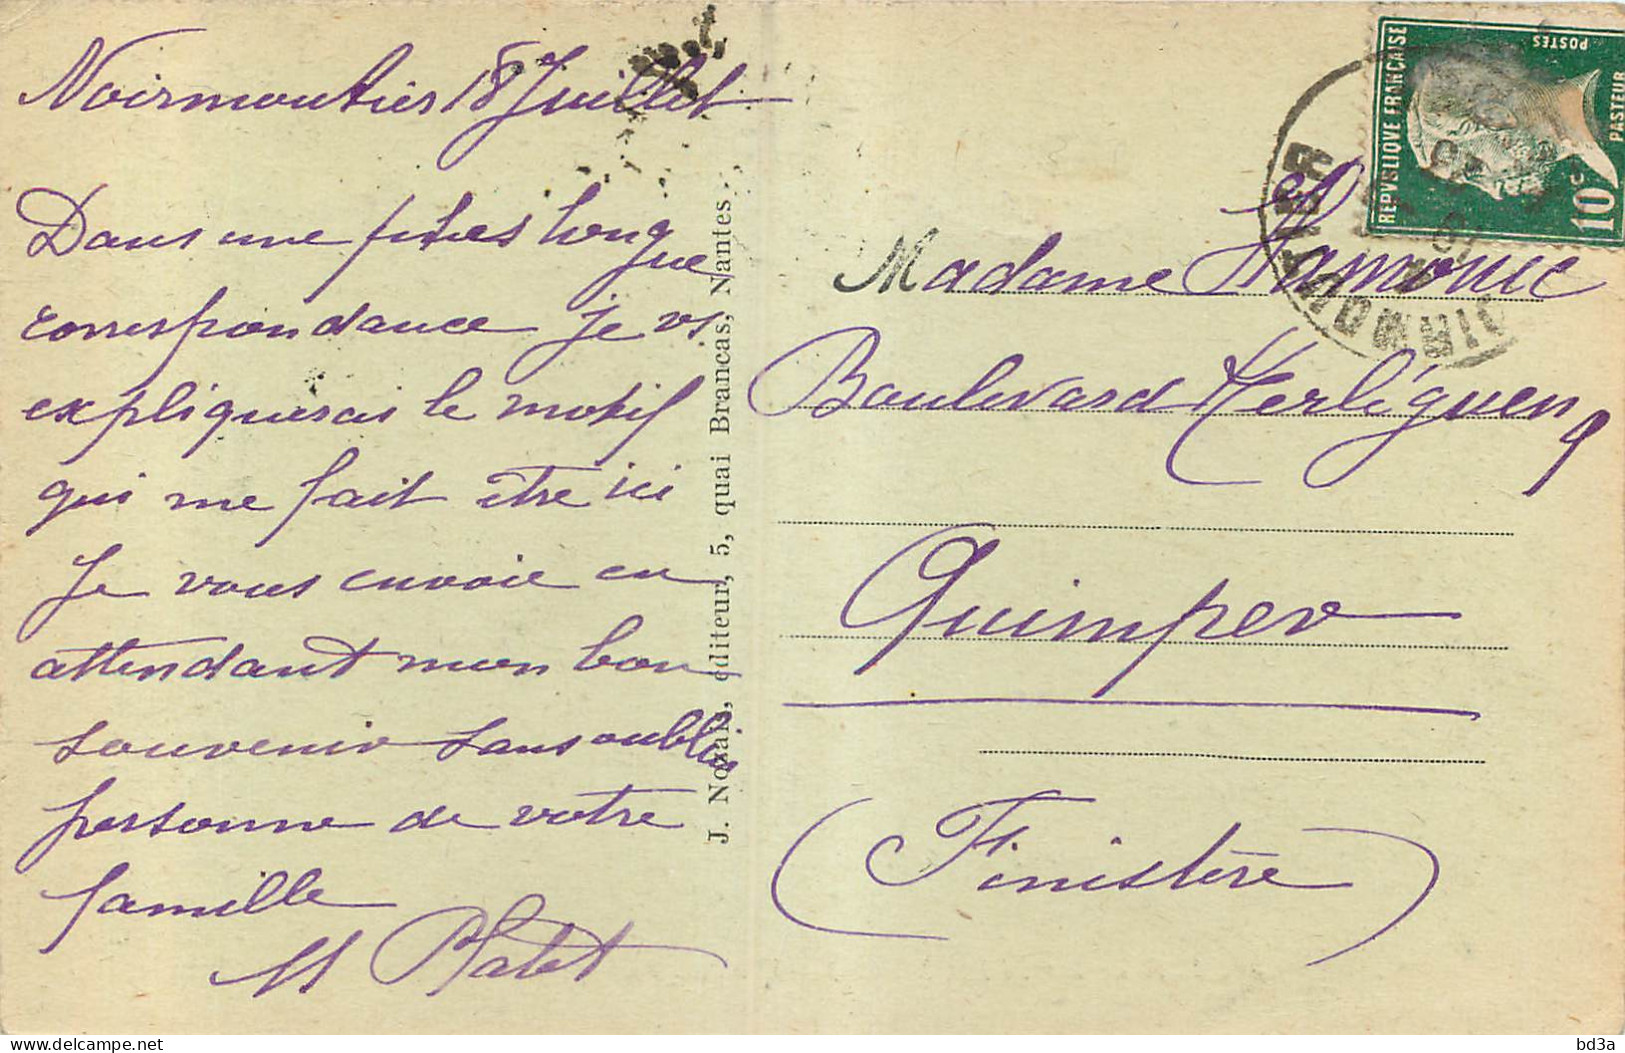 Noirmoutier 18 Juillet
Dans une plus longue
correspondance je vs
expliquerais le motif
qui me fait être ici
Je vous envoie en
attendant mon bon
souvenir sans oublier
personne de votre
famille
M
J. Nozais, éditeur, 5, quai Brancas, Nantes.
REPVBLIQVE FRANCAISE
POSTES
PASTEUR
10c
Madame Hamonic
Boulevard Kerléguen, 9
Quimper
(Finistère)
bd3a